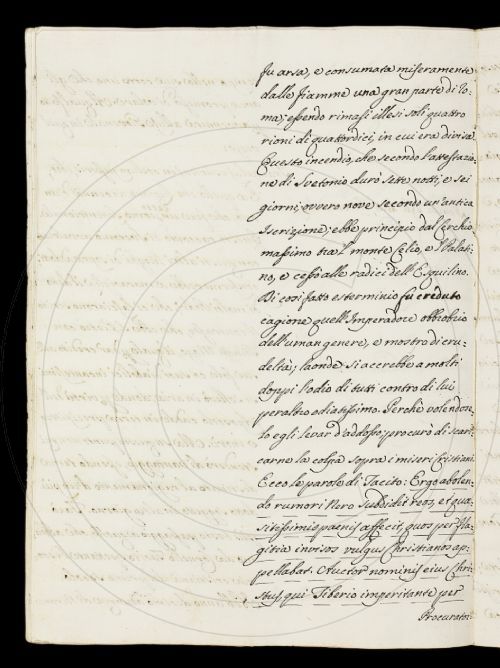 fu arsa, e consumata miseramente
dalle fiamme una gran parte di Ro-
ma; essendo rimasi illesi soli quattro
rioni di quattordici, in cui era divisa.
Questo incendio, che secondo l'attestazio-
ne di Svetonio durò sette notti, e sei
giorni, ovvero nove secondo un'antica
Iscrizione; ebbe principio dal Cerchio
massimo tra'l monte Celio, e'l Palati-
no, e cessò alle radici dell'Esquilino.
Di così fatto esterminio fu creduto
cagione quell'Imperadore obbrobrio
dell'uman genere, e mostro di cru-
deltà; laonde si accrebbe a molti
doppi l'odio di tutti contro di lui
peraltro odiatissimo. Perchè volendose-
lo egli levar d'addosso, procurò di scari-
carne la colpa sopra i miseri Cristiani.
Ecco le parole di Tacito: Ergo abolen-
do rumori Nero subdidit reos, et quæ-
sitissimis pœnis affecit, quos per fla-
gitia invisos vulgus Christianos ap-
pellabat. Auctor nominis eius Chri-
stus, qui Tiberio imperitante per
Procurator-